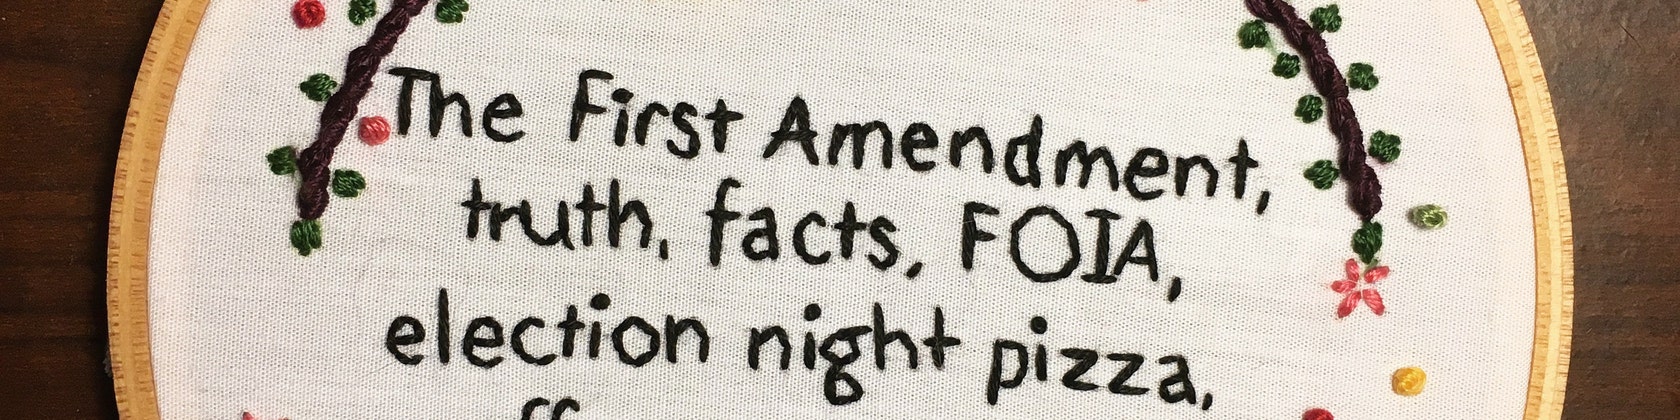 The First Amendment,
truth, facts, FOIA,
election night pizza,